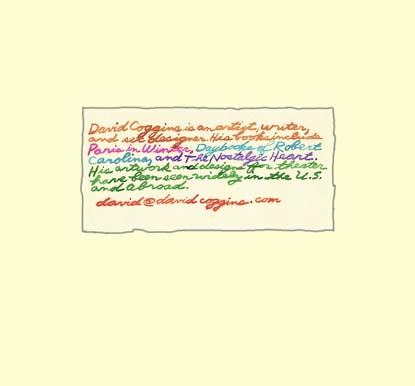 David Coggins is an artist, writer,
and set designer. His books include
Paris in Winter, Daybooks of Robert
Carolina, and The Nostalgic Heart.
His artwork and designs for theater
have been seen widely in the U.S.
and abroad.
david@davidcoggins.com